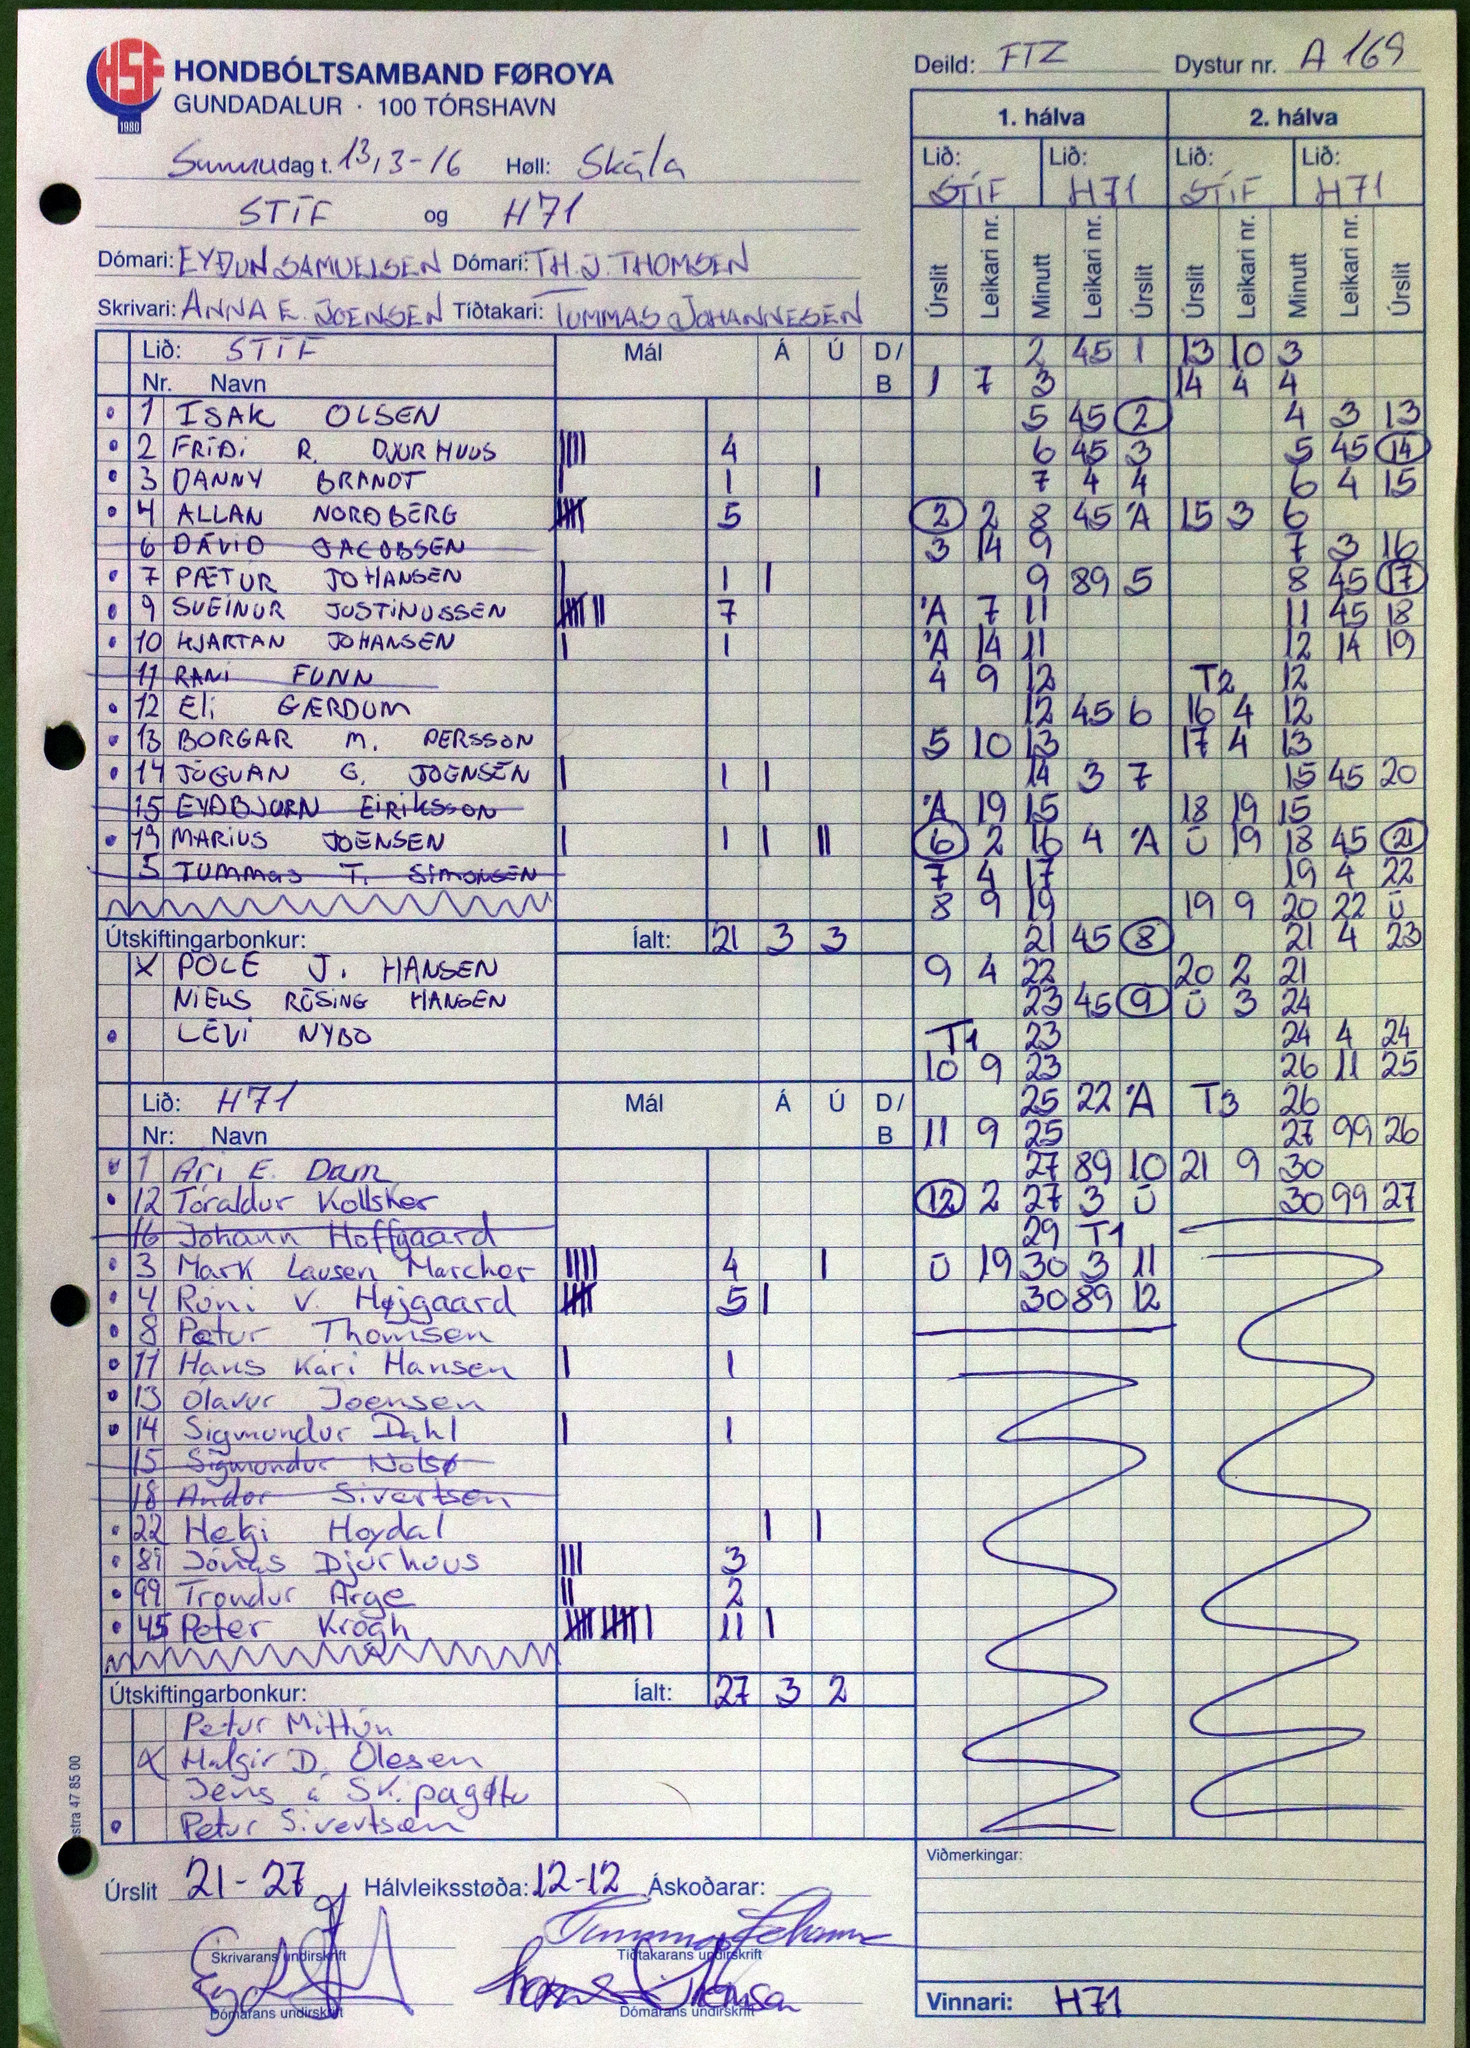 HSF
1980
HONDBÓLTSAMBAND FØROYA
GUNDADALUR · 100 TÓRSHAVN
Deild: FTZ Dystur nr. A 169
Sunnudag t. 13,3-16 Høll: Skála
STÍF og H71
Dómari: EYÐUN SAMUELSEN Dómari: TH. J. THOMSEN
Skrivari: ANNA E. JOENSEN Tíðtakari: TUMMAS JOHANNESEN
Lið: STÍF Mál Á Ú D/
Nr. Navn B
1 ISAK OLSEN
2 FRÍÐI R. DJURHUUS |||| 4
3 DANNY BRANDT | 1 |
4 ALLAN NORÐBERG |||| 5
6 DÁVID JACOBSEN
7 PÆTUR JOHANSEN | 1 |
9 SVEINUR JUSTINUSSEN |||| || 7
10 HJARTAN JOHANSEN | 1
11 RANI FUNN
12 Eli GÆRDUM
13 BORGAR M. PERSSON
14 JÓGVAN G. JOENSEN | 1 |
15 EYÐBJØRN EIRIKSSON
19 MARIUS JOENSEN | 1 | ||
5 TUMMAS T. SIMONSEN
Útskiftingarbonkur: Íalt: 21 3 3
X POLE J. HANSEN
NIELS RÓSING HANSEN
LEVI NYBO
Lið: H71 Mál Á Ú D/
Nr: Navn B
1 Ari E. Dam
12 Tóraldur Kollsker
16 Jóhann Hoffgaard
3 Mark Lausen Marcher |||| 4 |
4 Róni V. Højgaard |||| 5 |
8 Pætur Thomsen
11 Hans Kári Hansen | 1
13 Ólavur Joensen
14 Sigmundur Dahl | 1
15 Sigmundur Nolsø
18 Andor Sivertsen
22 Helgi Hoydal | |
89 Jónas Djurhuus ||| 3
99 Trondur Arge || 2
45 Peter Krogh |||| |||| | 11 |
Útskiftingarbonkur: Íalt: 27 3 2
Petur Mittún
X Halgir D. Olesen
Jens á Skipagøtu
Petur Sivertsen
Úrslit 21-27 Hálvleiksstøða: 12-12 Áskoðarar:
Skrivarans undirskrift Tíðtakarans undirskrift
Dómarans undirskrift Dómarans undirskrift
1. hálva 2. hálva
Lið: STÍF Lið: H71 Lið: STÍF Lið: H71
Úrslit Leikari nr. Minutt Leikari nr. Úrslit Úrslit Leikari nr. Minutt Leikari nr. Úrslit
2 45 1 13 10 3
1 7 3 14 4 4
5 45 2 4 3 13
6 45 3 5 45 14
7 4 4 6 4 15
2 2 8 45 'A 15 3 6
3 14 9 7 3 16
9 89 5 8 45 17
'A 7 11 11 45 18
'A 14 11 12 14 19
4 9 12 T2 12
12 45 6 16 4 12
5 10 13 17 4 13
14 3 7 15 45 20
'A 19 15 18 19 15
6 2 16 4 'A Ú 19 18 45 21
7 4 17 19 4 22
8 9 19 19 9 20 22 Ú
21 45 8 21 4 23
9 4 22 20 2 21
23 45 9 Ú 3 24
T1 23 24 4 24
10 9 23 26 11 25
25 22 'A T3 26
11 9 25 27 99 26
27 89 10 21 9 30
12 2 27 3 Ú 30 99 27
29 T1
Ú 19 30 3 11
30 89 12
Viðmerkingar:
Vinnari: H71
stra 47 85 00